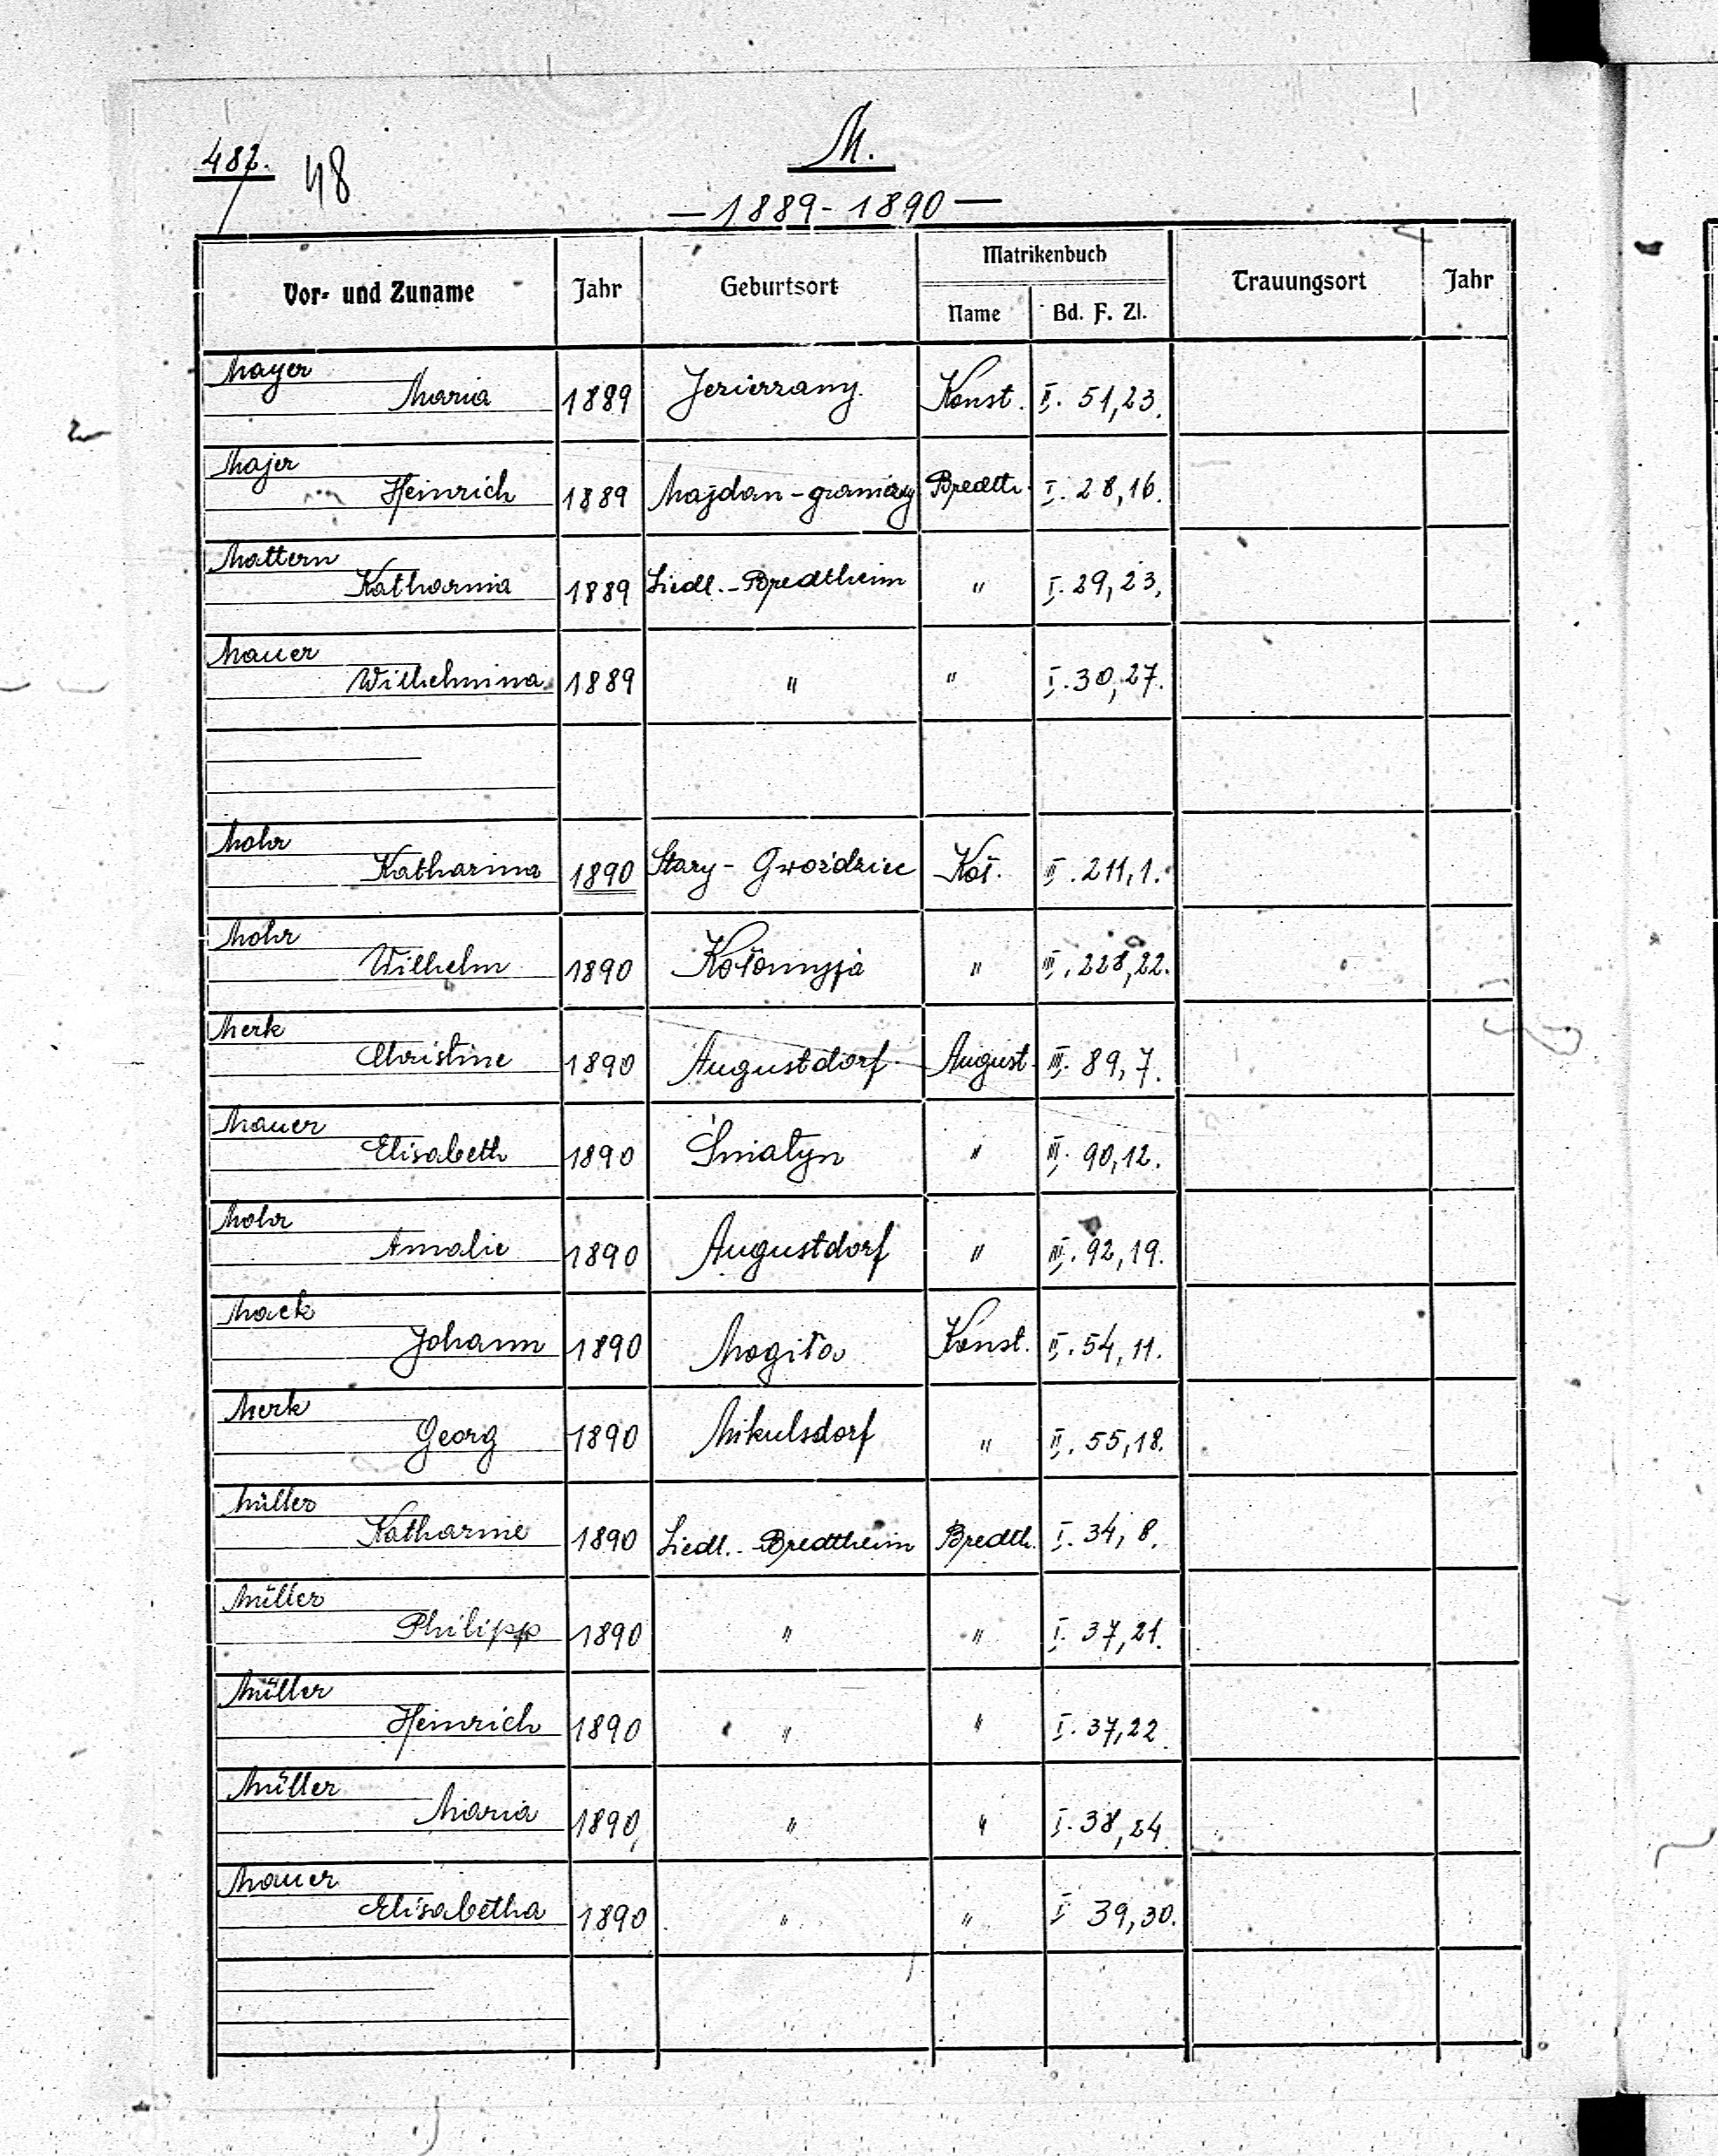 482. 48
M.
— 1889-1890 —
Vor- und Zuname Jahr Geburtsort Matrikenbuch Trauungsort Jahr
Name Bd. F. Zl.
Mayer
Maria 1889 Jezierzany Konst. II. 51,23.
Majer
Heinrich 1889 Majdan-graniczny Bredth. I. 28,16.
Mattern
Katharina 1889 Siedl.-Bredtheim " I. 29,23.
Mauer
Wilhelmina 1889 " " I. 30,27.
Mohr
Katharina 1890 Stary-Gwoździec Koł. III. 211,1.
Mohr
Wilhelm 1890 Kołomyja " III. 228,22.
Merk
Christine 1890 Augustdorf August. III. 89,7.
Mauer
Elisabeth 1890 Śniatyn " III. 90,12.
Mohr
Amalie 1890 Augustdorf " III. 92,19.
Mack
Johann 1890 Mogiła Konst. II. 54,11.
Merk
Georg 1890 Mikulsdorf " II. 55,18.
Müller
Katharine 1890 Siedl.-Bredtheim Bredth. I. 34,8.
Müller
Philipp 1890 " " I. 37,21.
Müller
Heinrich 1890 " " I. 37,22.
Müller
Maria 1890, " " I. 38,24
Mauer
Elisabetha 1890 " " I 39,30.